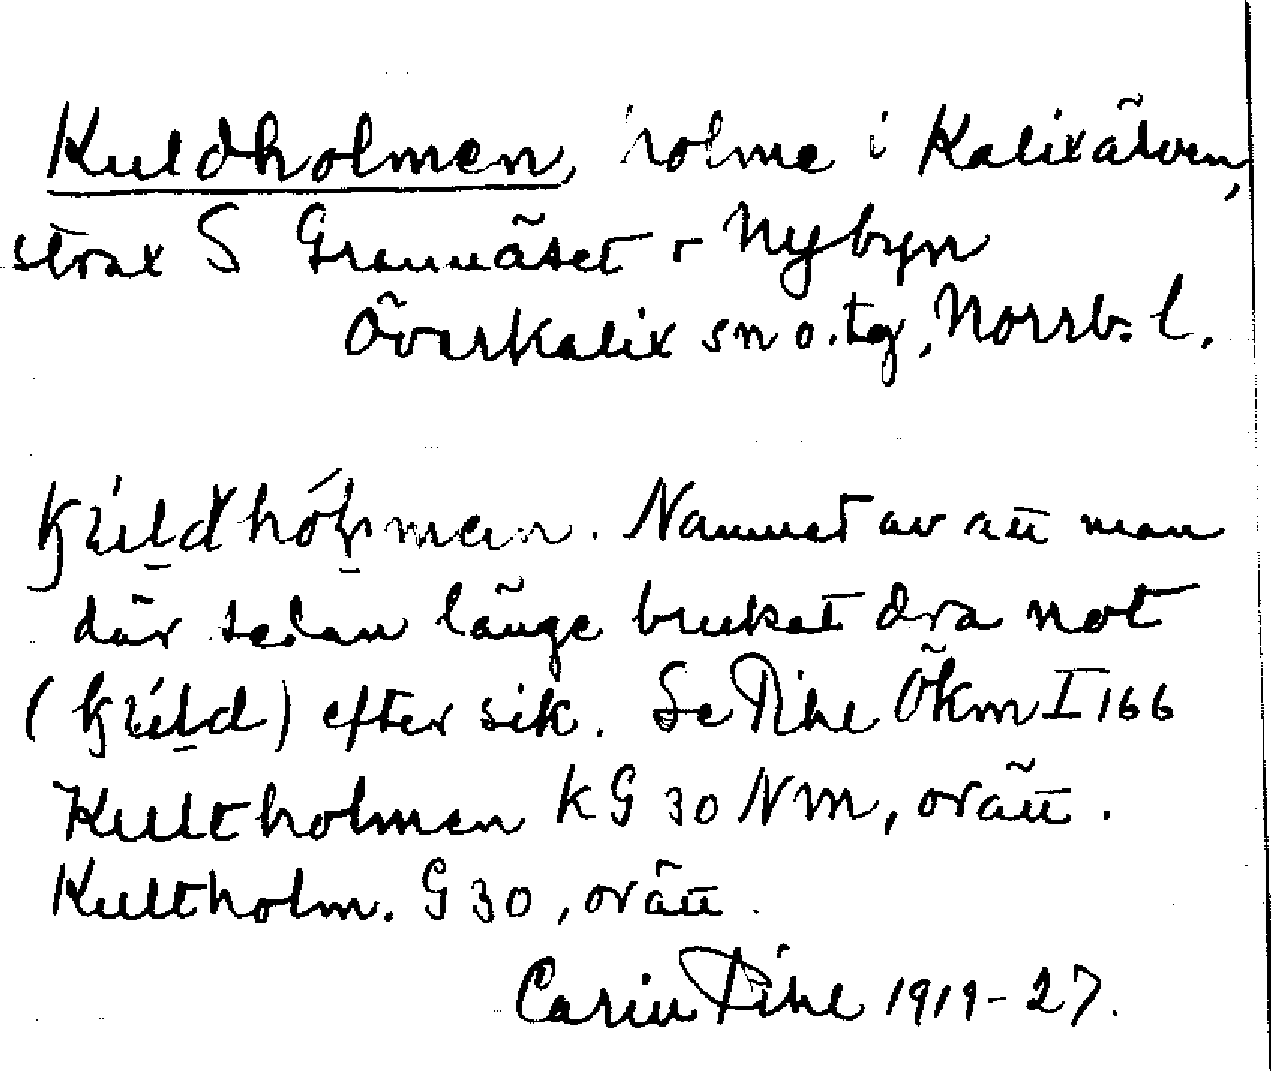 Kuldholmen, holme i Kalixälven,
strax S Grannäset - Nybyn
Överkalix sn o. tg, Norrb. l.
Namnet av att man
där sedan länge brukat dra not
( ) efter sik. Se Pihl Ökm I 166
Kultholmen KG 30 NM, orätt.
Kultholm. G 30, orätt.
Carin Pihl 1919-27.